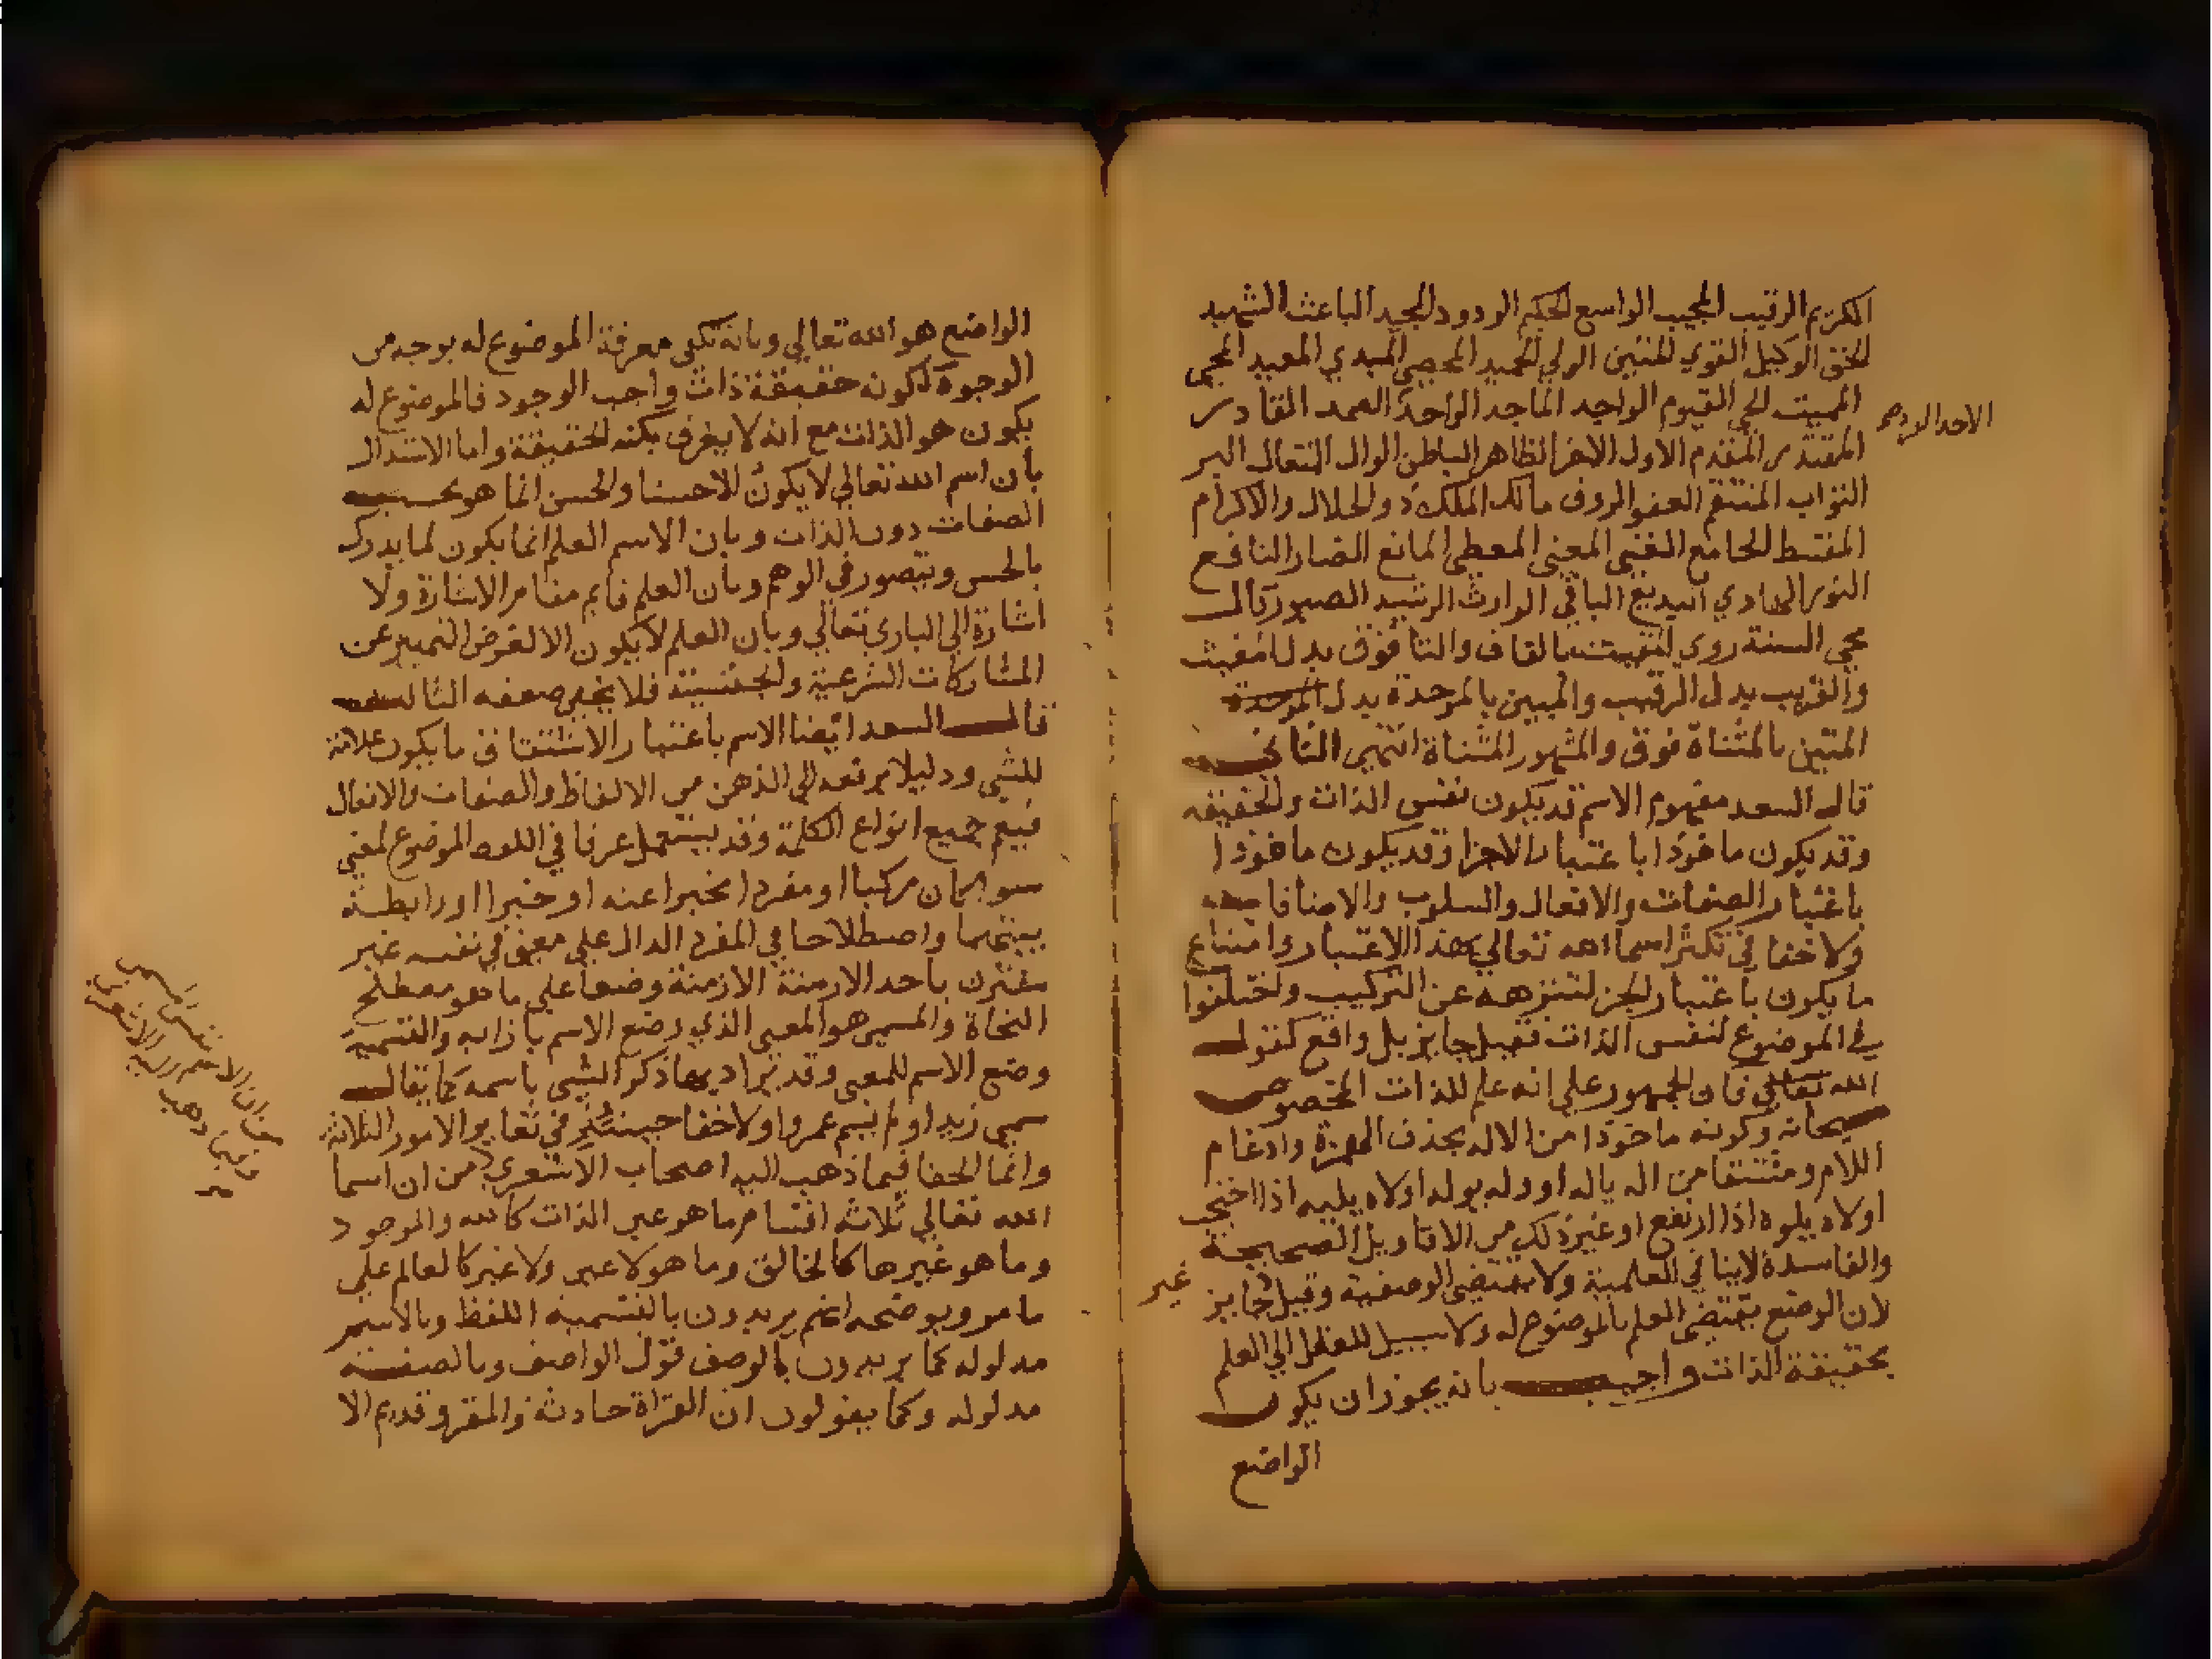 الكريم الرقيب المجيب الواسع الحكيم الودود المجيد الباعث الشهيد
الحق الوكيل القوي المتين الولي الحميد المحصي المبدي المعيد المحيي
المميت الحي القيوم الواجد الماجد الواحد الصمد القادر
الاحد
المقتدر المقدم الاول الاخر الظاهر الباطن الوال المتعال البر
التواب المنتقم العفو الروف مالك الملك ذو الجلال والاكرام
المقسط الجامع الغني المغني المعطي المانع الضار النافع
النور الهادي البديع الباقي الوارث الرشيد الصبور قال
محيي السنة روي المقيت بالقاف والتا فوق بدل المغيث
والقريب بدل الرقيب والمبين بالموحدة بدل
المتين بالمثناة فوق والمشهور المثناة انتهى الثاني
قال السعد مفهوم الاسم قد يكون نفس الذات والحقيقه
وقد يكون ماخوذا باعتبار الاجزا وقد يكون ماخوذا
باعتبار الصفات والافعال والسلوب والاضافات
ولا خفا في تكثر اسما الله تعالي بهذا الاعتبار وامتناع
ما يكون باعتبار الجز لتنزهه عن التركيب واختلفوا
في الموضوع لنفس الذات فقيل جايز بل واقع كقولـ
الله تعالي فان الجمهور علي انه علم للذات المخصوص
سبحانه وكونه ماخوذا من الاله بحذف الهمزة وادغام
اللام ومشتقا من اله ياله او وله يوله او لاه يليه اذا احتجب
او لاه يلوه اذا ارتفع او غير ذلك من الاقاويل الصحيحة
والفاسدة لا ينافي العلمية ولا يقتضي الوصفية وقيل غير جايز
لان الوضع يقتضي العلم بالموضوع له ولا سبيل للعقل الي العلم
بحقيقة الذات واجيب بانه يجوز ان يكون
الواضع
الواضع هو الله تعالي وبانه تكفي معرفة الموضوع له بوجه من
الوجوه ككونه حقيقة ذات واجب الوجود فالموضوع له
يكون هو الذات مع انه لا يعرف بكنه الحقيقة واما الاستدلال
بان اسم الله تعالي لا يكون الا حسنا والحسن انما هو بحسب
الصفات دون الذات وبان الاسم العلم انما يكون لما يدرك
بالحس ويتصور في الوهم وبان العلم قايم مقام الاشارة ولا
اشارة الي الباري تعالي وبان العلم لا يكون الا لغرض التمييز عن
المشاركات الشرعية والجنسية فلا يخفي ضعفه الثالث
قال السعد ايضا الاسم باعتبار الاشتقاق ما يكون علامة
للشي ودليلا يرفعه الي الذهن من الالفاظ والصفات والافعال
فيعم جميع انواع الكلمة وقد يستعمل عرفا في اللفظ الموضوع لمعني
سوا كان مركبا او مفردا مخبرا عنه او خبرا او رابطة
بينهما واصطلاحا في المفرد الدال علي معني في نفسه غير
مقترن باحد الازمنة الازمنة وضعا علي ما هو مصطلح
النحاة والمسمي هو المعني الذي وضع الاسم بازايه والتسمية
وضع الاسم للمعني وقد يراد بها ذكر الشي باسمه كما يقال
سمي زيدا ولم يسم عمروا ولا خفا حينئذ في تغاير الامور الثلاثة
وانما الخفا فيما ذهب اليه اصحاب الاشعري من ان اسما
الله تعالي ثلاثه اقسام ما هو عين الذات كالله والموجود
وما هو غيرها كالخالق وما هو لا عين ولا غير كالعالم علي
ما مر ويوضحه انهم يريدون بالتسمية اللفظ وبالاسم
مدلوله كما يريدون بالوصف قول الواصف وبالصفة
مدلوله وكما يقولون ان القراة حادثة والمقرو قديم الا